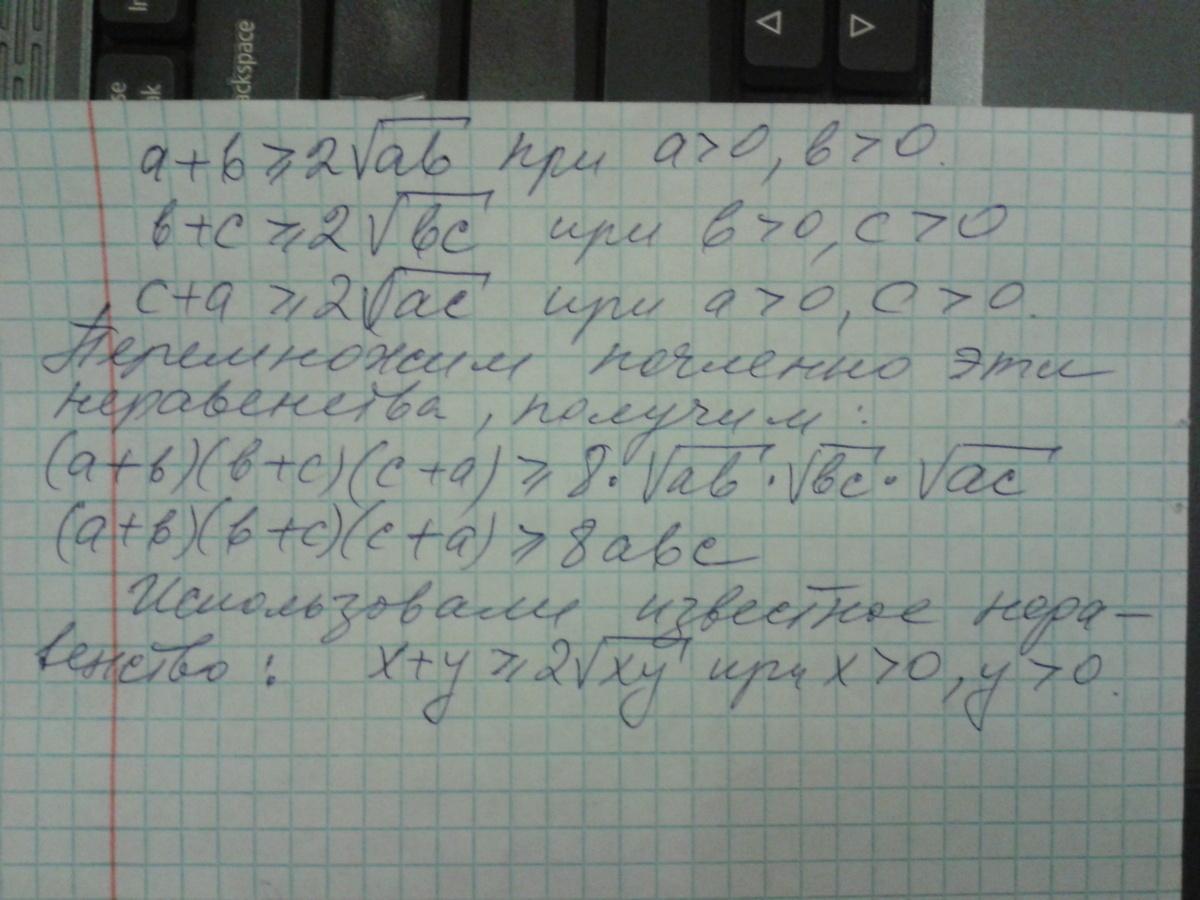 In
se
ak
ackspace
a+b ⩾ 2√ab при a>0, b>0.
b+c ⩾ 2√bc при b>0, c>0
c+a ⩾ 2√ac при a>0, c>0.
Перемножим почленно эти
неравенства, получим:
(a+b)(b+c)(c+a) ⩾ 8·√ab·√bc·√ac
(a+b)(b+c)(c+a) ⩾ 8abc
Использовали известное нера-
венство: x+y ⩾ 2√xy при x>0, y>0.